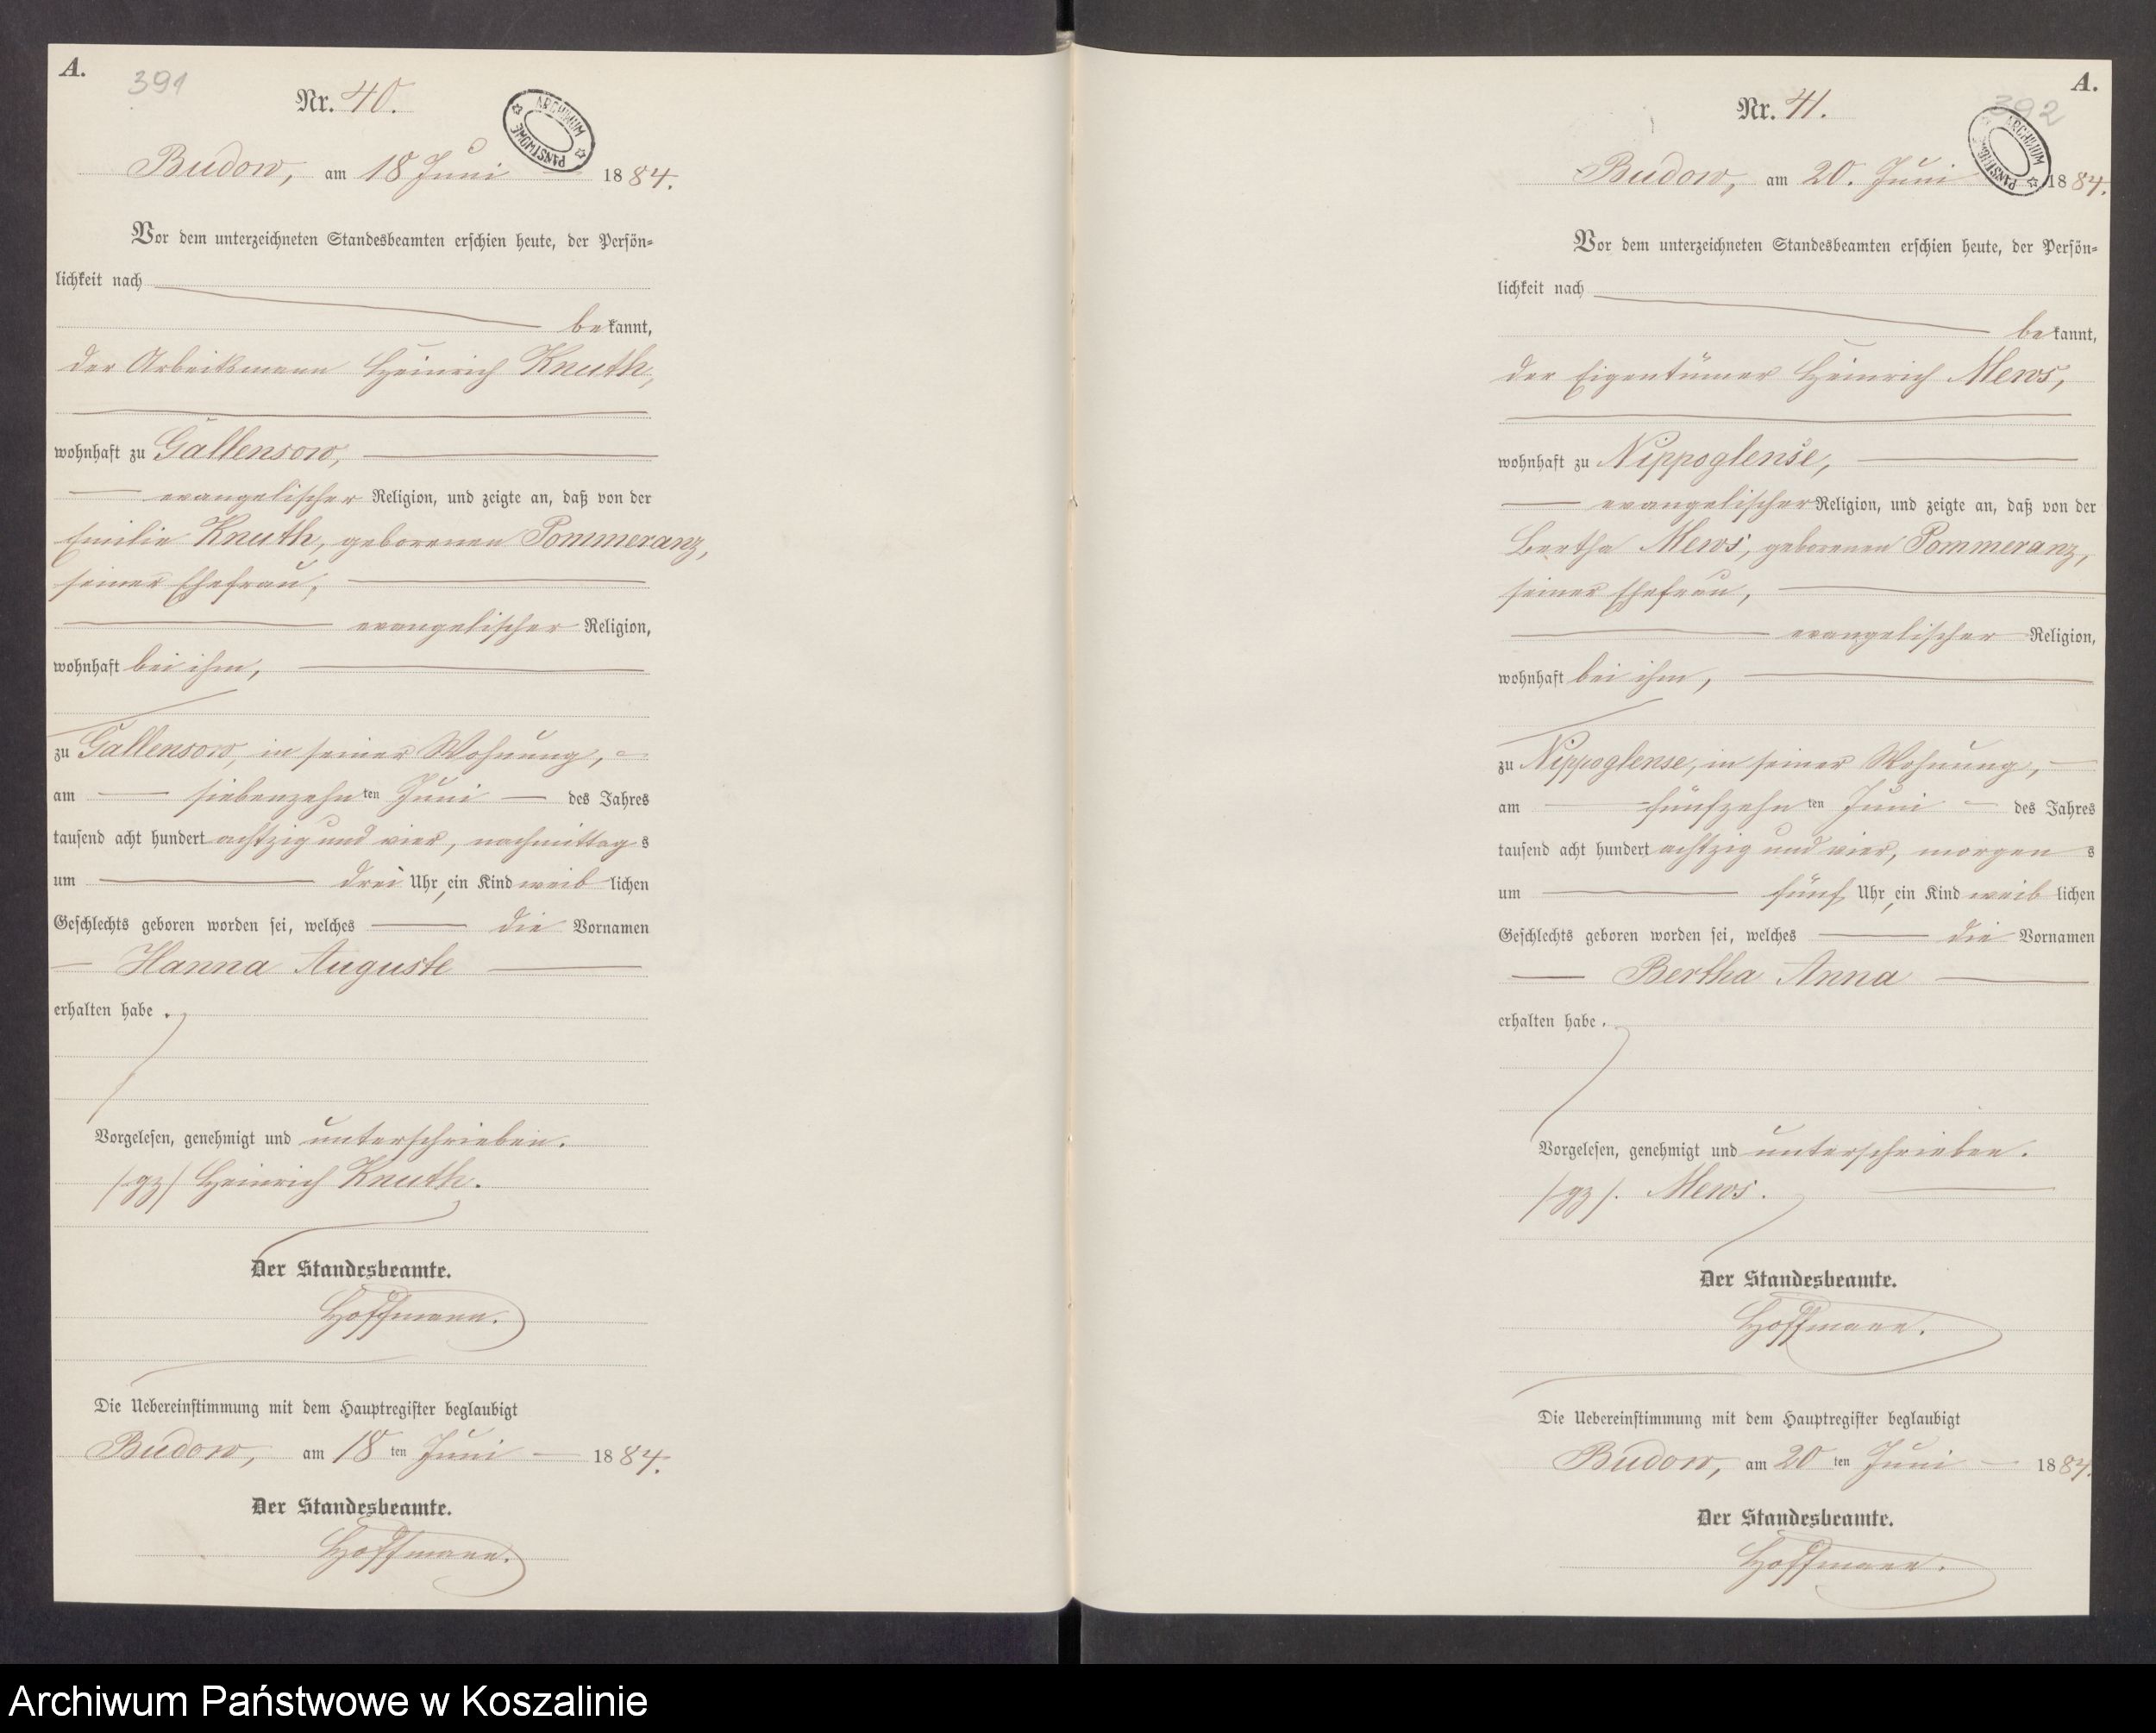 A.
391
Nr. 40.
ARCHIWUM PAŃSTWOWE
Budow, am 18 Juni 1884.
Vor dem unterzeichneten Standesbeamten erschien heute, der Persön-
lichkeit nach
bekannt,
der Arbeitsmann Heinrich Knuth,
wohnhaft zu Gallensow,
evangelischer Religion, und zeigte an, daß von der
Emilie Knuth, geborenen Pommeranz,
seiner Ehefrau,
evangelischer Religion,
wohnhaft bei ihm,
zu Gallensow, in seiner Wohnung,
am siebenzehnten Juni des Jahres
tausend acht hundert achtzig und vier, nachmittags
um drei Uhr, ein Kind weiblichen
Geschlechts geboren worden sei, welches die Vornamen
Hanna Auguste
erhalten habe.
Vorgelesen, genehmigt und unterschrieben.
/gz/ Heinrich Knuth.
Der Standesbeamte.
Hoffmann.
Die Uebereinstimmung mit dem Hauptregister beglaubigt
Budow, am 18ten Juni 1884.
Der Standesbeamte.
Hoffmann.
A.
392
Nr. 41.
ARCHIWUM PAŃSTWOWE
Budow, am 20. Juni 1884.
Vor dem unterzeichneten Standesbeamten erschien heute, der Persön-
lichkeit nach
bekannt,
der Eigentümer Heinrich Mews,
wohnhaft zu Nippoglense,
evangelischer Religion, und zeigte an, daß von der
Bertha Mews, geborenen Pommeranz,
seiner Ehefrau,
evangelischer Religion,
wohnhaft bei ihm,
zu Nippoglense, in seiner Wohnung,
am fünfzehnten Juni des Jahres
tausend acht hundert achtzig und vier, morgens
um fünf Uhr, ein Kind weiblichen
Geschlechts geboren worden sei, welches die Vornamen
Bertha Anna
erhalten habe.
Vorgelesen, genehmigt und unterschrieben.
/gz/. Mews.
Der Standesbeamte.
Hoffmann.
Die Uebereinstimmung mit dem Hauptregister beglaubigt
Budow, am 20ten Juni 1884.
Der Standesbeamte.
Hoffmann.
Archiwum Państwowe w Koszalinie